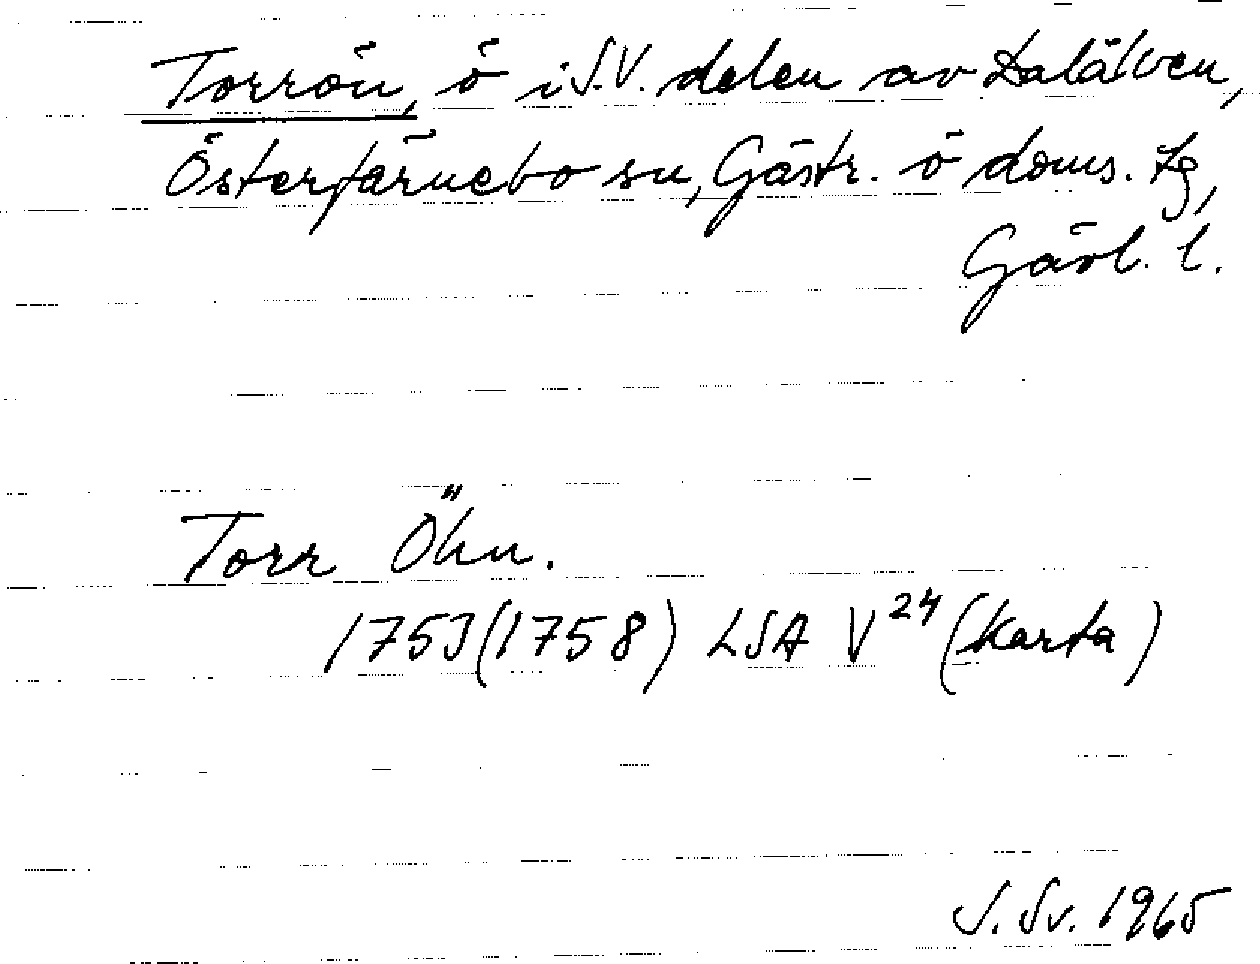 Torrön, ö i S.V. delen av Dalälven,
Österfärnebo sn, Gästr. ö doms. tg,
Gävl. l.
Torr Öhn.
1753(1758) LSA V²⁴ (Karta)
S. Sv. 1965